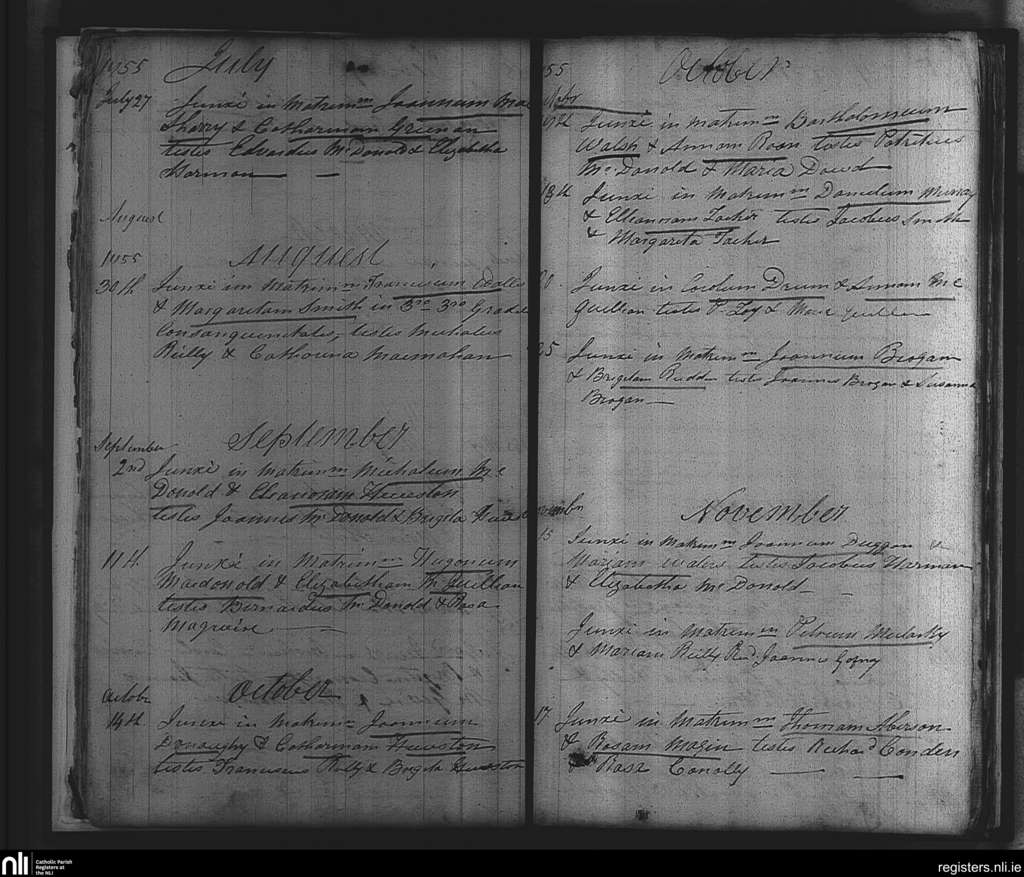 1855 July
July 27 Junxi in Matrimm Joannum Mac
Sharry & Catharinam Greenan
testes Edvardus McDonold & Elizabetha
Harman
August
1855 August
30th Junxi in Matrimm Franciscum
& Margaritam Smith in 3o 3o Grade
Consanguinitatis, testes Michales
Reilly & Catharina Macmahan
September
September
2nd Junxi in Matrimm Michaleum Mc
Donold & Eleanoram Heweston
testes Joannes McDonold & Brigeta
11th Junxi in Matrimm Hugonum
Macdonold & Elizabetham McQuillian
testes Bernardus McDonold & Rosa
Magwire
October
October
14th Junxi in Matrimm Joannum
Donaughy & Catharinam Hewston
testes Franciscus Rolly & Brigeta Hewston
55 October
Junxi in Matrimm Bartholomeum
Walsh & Annam Roon testes Patritius
McDonold & Maria Dowd
18th Junxi in Matrimm Danielum Murray
& Elleanoram Tacker testes Jacobus Smith
& Margarita Tacker
20 Junxi in Carolum Drum & Annam Mc
Quillian testes P. Foy & Mark Quillian
25 Junxi in Matrimm Joannum Brogan
& Brigitam Rudden testes Joannes Brogan & Susanna
Brogan
November
15 Junxi in Matrimm Joannum Duggan &
Mariam Waters testes Jacobus Harman
& Elizabetha McDonold
Junxi in Matrimm Petrum
& Mariam Reilly Joannes
17 Junxi in Matrimm Thomam
& Rosam Magin testes Richard Conden
& Rosa Conolly
nli Catholic Parish
Registers at
the NLI
registers.nli.ie